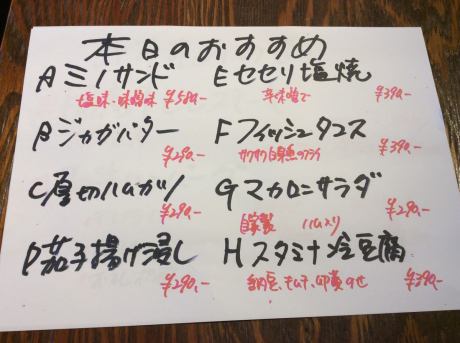 本日のおすすめ
Aミノサンド
塩味・味噌味 ¥580.-
Bジャガバター
¥290.-
C厚切ハムカツ
¥290.-
D茄子揚げ浸し
¥290.-
Eセセリ塩焼
辛味噌で ¥390.-
Fフィッシュタコス
サクサク白身魚のフライ ¥390.-
Gマカロニサラダ
自家製 ハム入り ¥290.-
Hスタミナ冷豆腐
納豆、キムチ、卵黄のせ ¥390.-